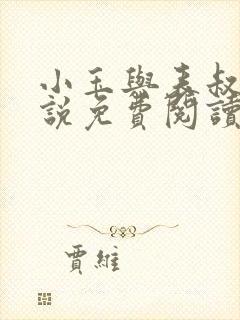 小玉與表叔
說免費閱讀
賈維